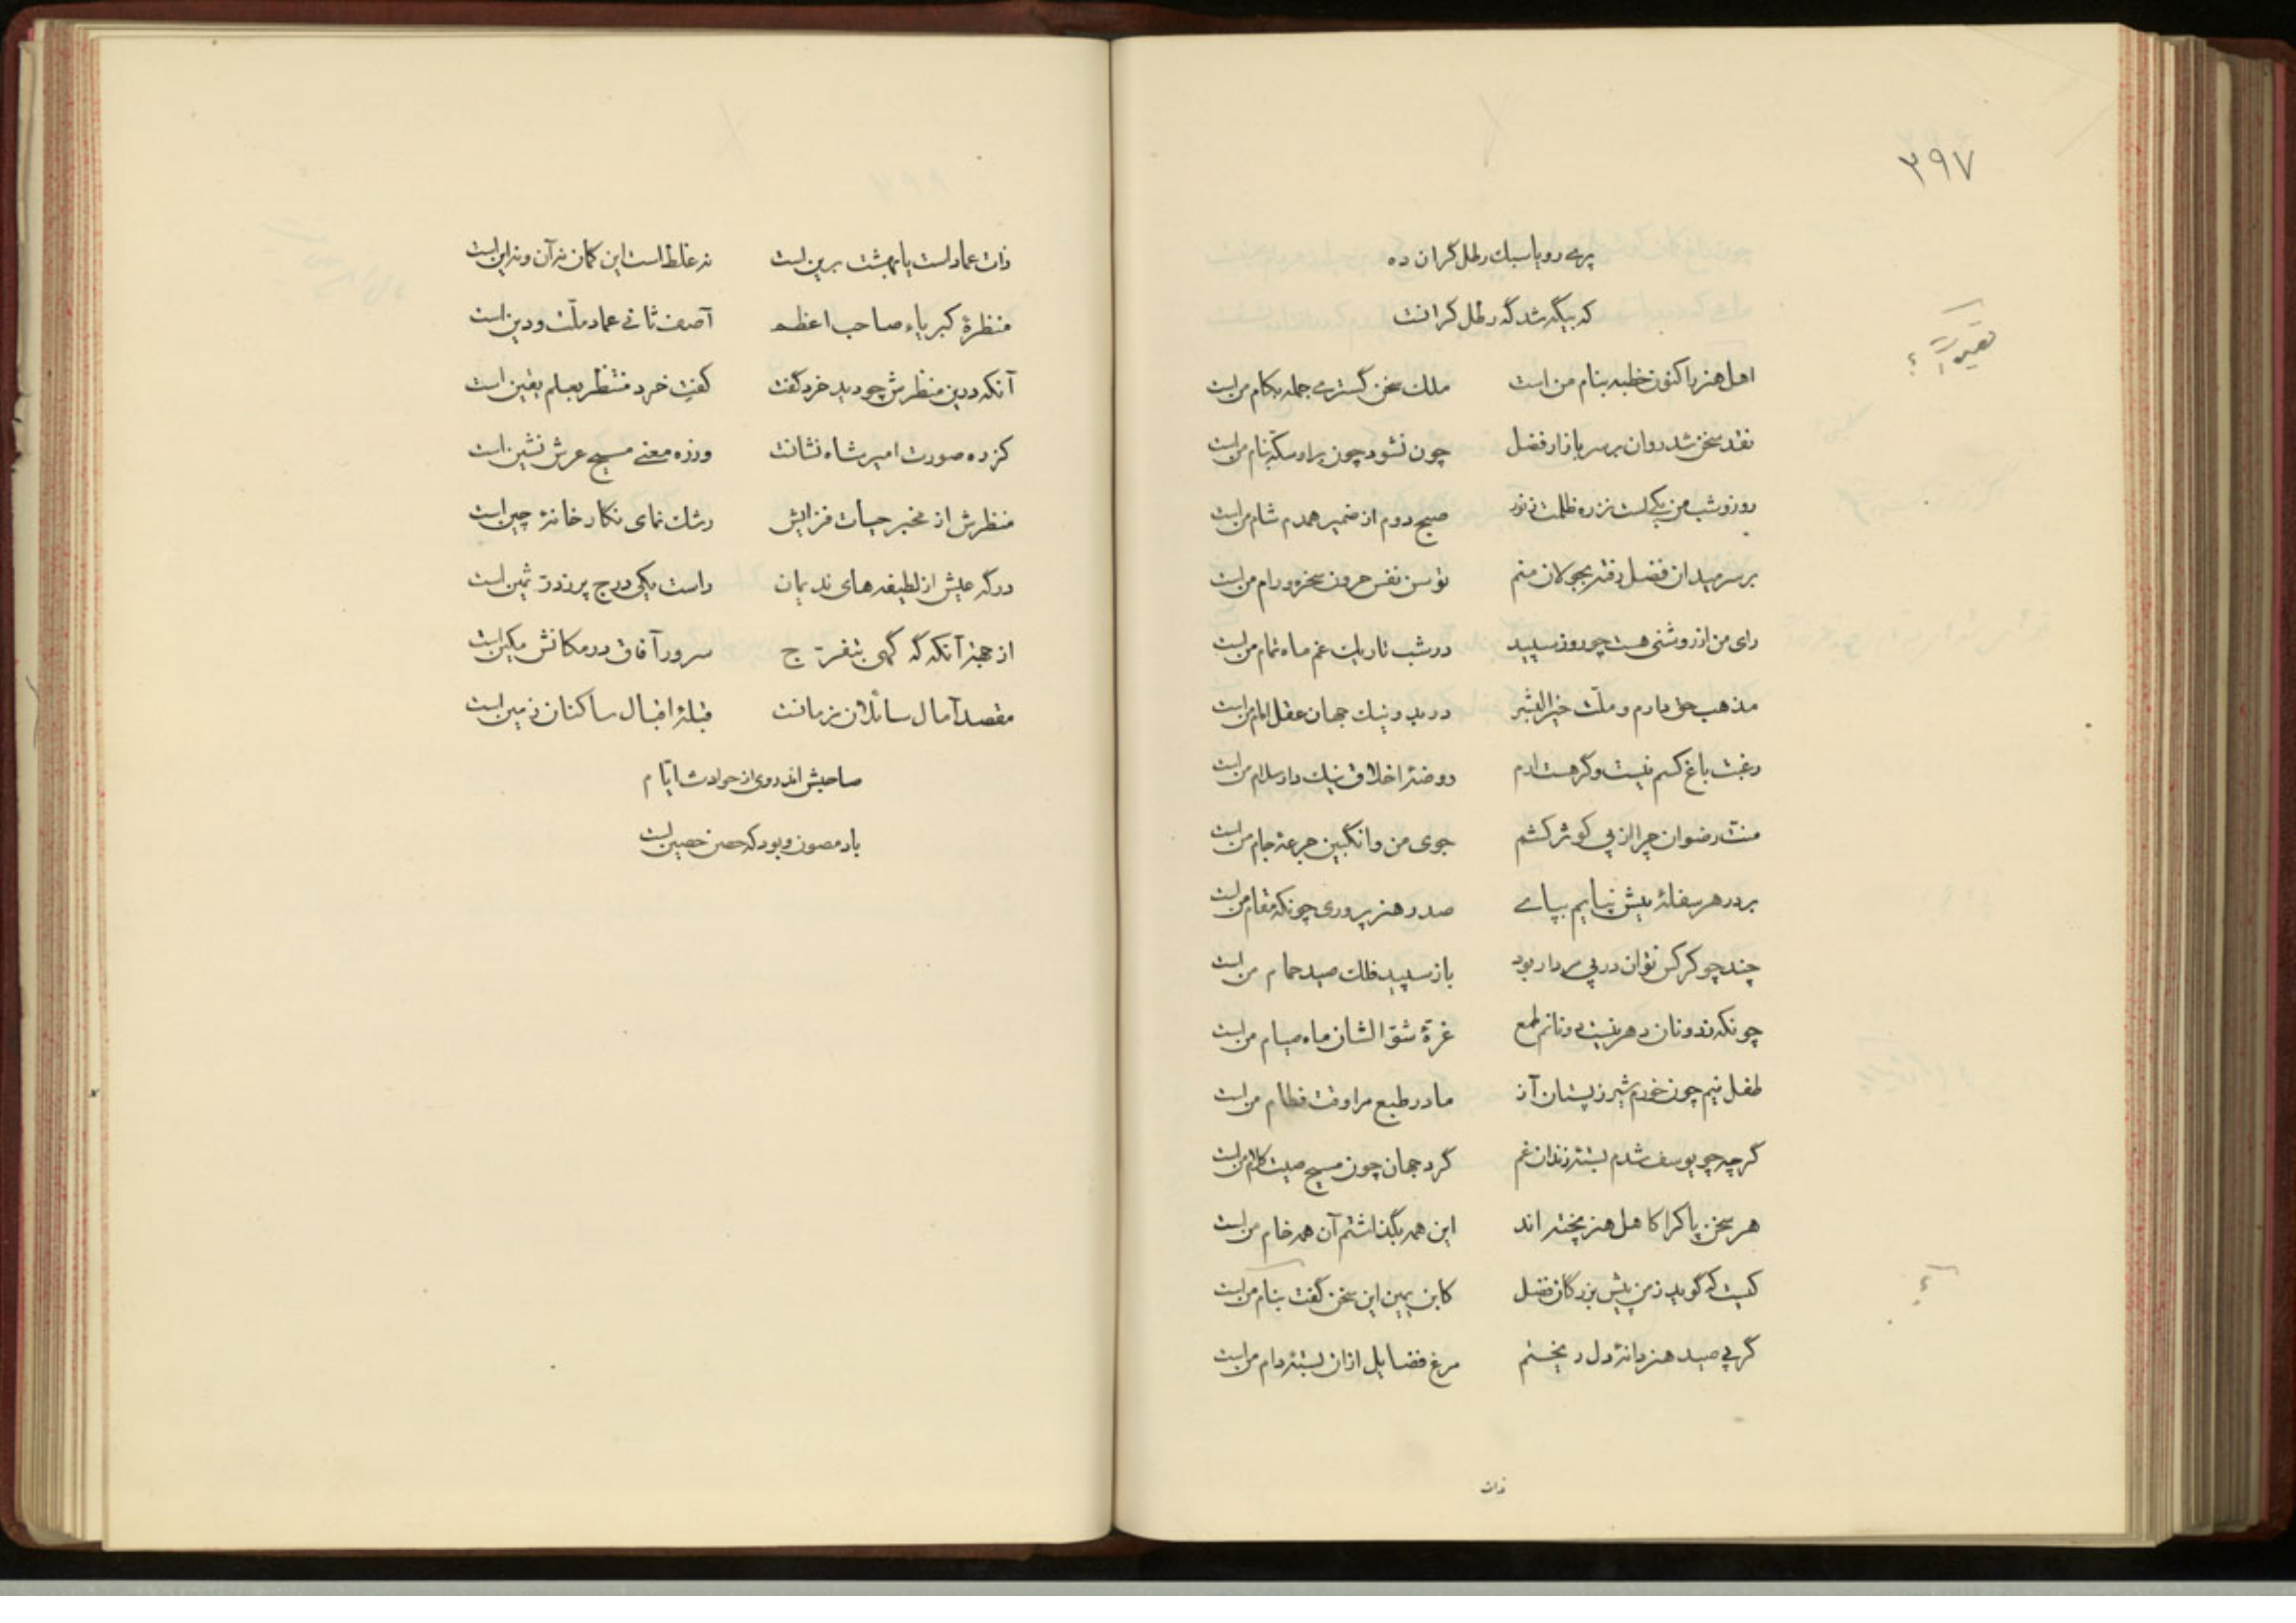 ۳۹۷
پری رویا سبک رطل گران ده
که بیگه شد گه رطل گرانت
اهل هنر را کنون خطبه بنام من است ملک سخن گستری جمله بکام من است
نقد سخن شد روان بر سر بازار فضل چون نشود چون براو سکه بنام من است
روز و شب من یکیست نزد ظلمت نور صبح دوم از ضمیر همدم شام من است
بر سر میدان فضل دفتر بجولان منم توسن نفس حرون سخره و رام من است
رای من از روشنی هست چو روز سپید در شب تاریک غم ماه تمام من است
مذهب حق دارم و ملّت خیر البشر در بد و نیک جهان عقل امام من است
رغبت باغ کسم نیست و گر هست ارم روضهٔ اخلاق نیک دار سلام من است
منّت رضوان چرا از پی کوثر کشم جوی من و انگبین جرعهٔ جام من است
بر در هر سفلهٔ بیش نیایم بپای صدر هنر پروری چونکه مقام من است
چند چو کرکس توان در پی مردار بود باز سپید فلک صید حمام من است
چونکه ز دونان دهر نیست دو نانم طمع غرّهٔ شوّ الشان ماه صیام من است
طفل نیم چون خورم شیر ز پستان آز مادر طبع مرا وقت فطام من است
گرچه چو یوسف شدم بسته زندان غم گرد جهان چون مسیح صیت کلام من است
هر سخن پاکرا کاهل هنر پخته اند این همه بگذاشتم آن همه خام من است
کیست که گوید ز من پیش بزرگان فضل کابن یمین این سخن گفت بنام من است
گر پی صید هنر دانهٔ دل ریختم مرغ فضایل ازان بستهٔ دام من است
ذات
ذات عمادلست یا بهشت برین است نه غلط است این گمان نه آن و نه این است
منظرهٔ کبریاء صاحب اعظم آصف ثانی عماد ملّت و دین است
آنکه درین منظرش چو دید خرد گفت گفت خرد منتظر بعلم یقین است
کز ره صورت امیر شاه نشانت وز ره معنی مسیح عرش نشین است
منظرش از مخبر حیات فزایش رشک نمای نگار خانهٔ چین است
درگه عیش از لطیفه های ندیمان راست یکی درج پر ز درّ ثمین است
از جهة آنکه گه گهی بتفرّج سرور آفاق در مکانش مکین است
مقصد آمال سائلان زمانت قبلهٔ اقبال ساکنان زمین است
صاحبش اندروی از حوادث ایّام
باد مصون و بود که حصن حصین است